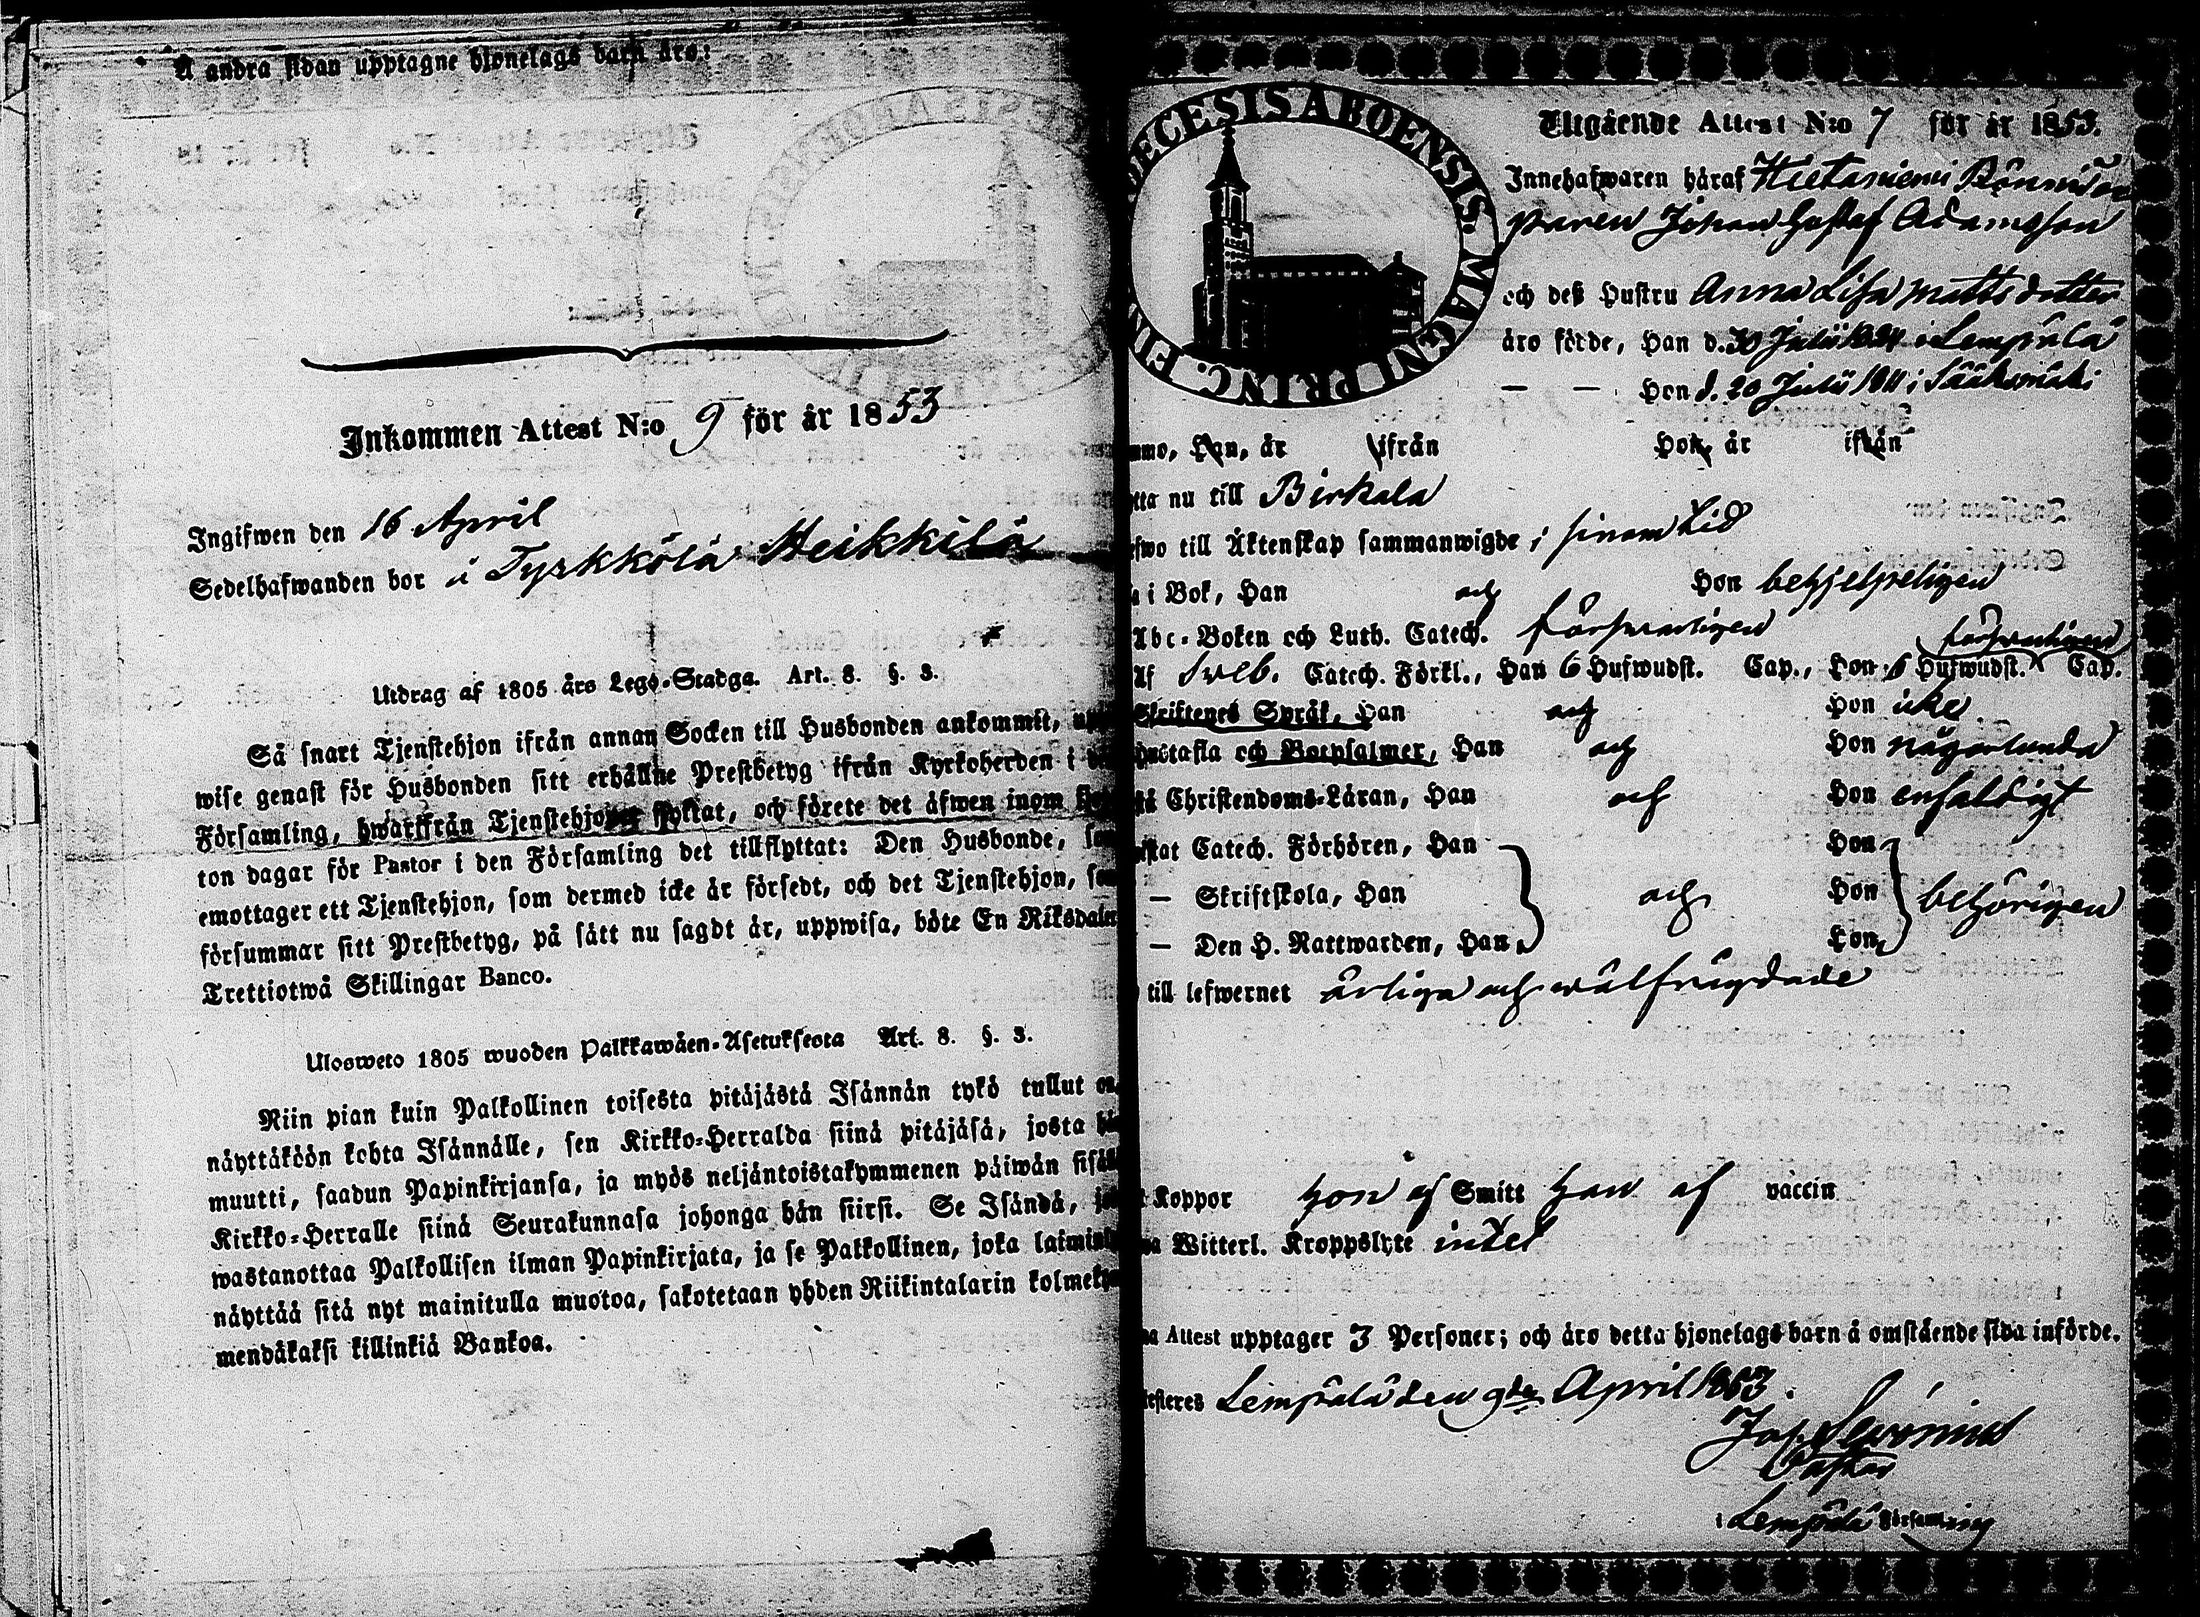 Å andra sidan upptagne hjonelags barn äro:
Inkommen Attest N:o 9 för år 1853
Ingifwen den 16 April
Sedelhafwanden bor i Tyrkkölä Heikkilä
Utdrag af 1805 års Lego-Stadga. Art. 8. §. 3.
Så snart Tjenstehjon ifrån annan Socken till Husbonden ankommit, upp
wise genast för Husbonden sitt erhållne Prestbetyg ifrån Kyrkoherden i
Församling, hwarifrån Tjenstehjonet flyttat, och förete det äfwen inom
ton dagar för Pastor i den Församling det tillflyttat: Den Husbonde, som
emottager ett Tjenstehjon, som dermed icke är försedt, och det Tjenstehjon, som
försummar sitt Prestbetyg, på sätt nu sagdt är, uppwisa, böte En Riksdaler
Trettiotwå Skillingar Banco.
Ulosweto 1805 wuoden Palkkawäen-Asetuksesta Art. 8. §. 3.
Niin pian kuin Palkollinen toisesta pitäjästä Isännän tykö tullut on,
näyttäköön kohta Isännälle, sen Kirkko-Herralda siinä pitäjäsä, josta hän
muutti, saadun Papinkirjansa, ja myös neljäntoistakymmenen päiwän sisäl
Kirkko-Herralle siinä Seurakunnasa johonga hän siirsi. Se Isändä, jo
wastanottaa Palkollisen ilman Papinkirjata, ja se Palkollinen, joka laimin
näyttää sitä nyt mainitulla muotoa, sakotetaan yhden Riikintalarin kolmeky
mendäkaksi killinkiä Bankoa.
DECESIS ABOENSIS. MAGNI PRINC. FIN
Utgående Attest N:o 7 för år 1853.
Innehafwaren häraf Hietaniemi
Johan Gustaf Adamsson
och deß Hustru Anna Lisa Mattsdotter
äro födde, Han d. 30 Julii i Lempälä
— — Hon d. 20 Julii 1811 i Sääksmäki
mmo, Han, år ifrån Hon, år ifrån
tta nu till Birkala
fwo till Äktenskap sammanwigde i sinom tid
i Bok, Han och Hon behjelpeligen
Abc-Boken och Luth. Catech. försvarligen försvarligen
Af Sveb. Catech. Förkl., Han 6 Hufwudst. Cap., Hon 6 Hufwudst. Cap.
Skriftenes Språk, Han och Hon icke
Hustafla och Botpsalmer, Han och Hon någorlunda
stå Christendoms-Läran, Han och Hon enfaldigt
istat Catech. Förhören, Han Hon
— Skriftskola, Han och Hon behörigen
— Den H. Nattwarden, Han Hon
till lefwernet ärliga och wälfrägdade
t Koppor Hon af Smitt Han af vaccin
wa Witterl. Kroppslyte intet
na Attest upptager 3 Personer; och äro detta hjonelags barn å omstående sida införde.
testeres Lempälä den 9de April 1853.
Jos. Sevonius
Pastor
i Lempälä Församling